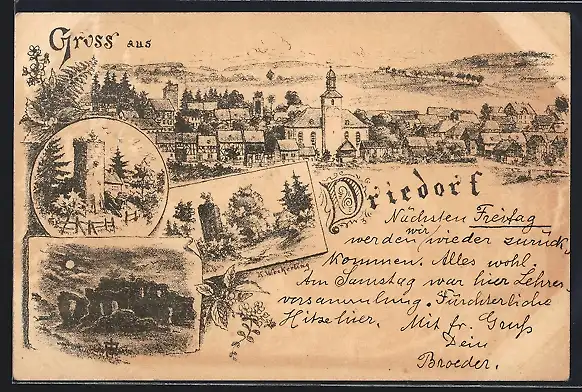 Gruss aus
Driedorf
Nächsten Freitag
wir
werden wieder zurück
kommen. Alles wohl.
Am Samstag war hier Lehrer
versammlung. Fürchterliche
Hitze hier. Mit fr. Gruß
Dein
Broeder.